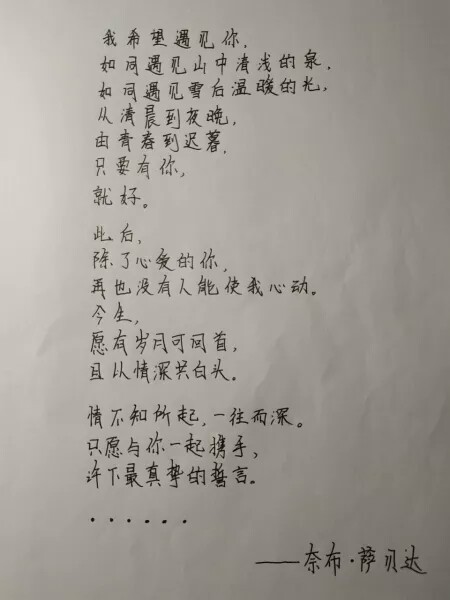 我希望遇见你，
如同遇见山中清浅的泉，
如同遇见雪后温暖的光，
从清晨到夜晚，
由青春到迟暮，
只要有你，
就好。
此后，
除了心爱的你，
再也没有人能使我心动。
今生，
愿有岁月可回首，
且以情深共白头。
情不知所起，一往而深。
只愿与你一起携手，
许下最真挚的誓言。
······
——奈布·萨贝达